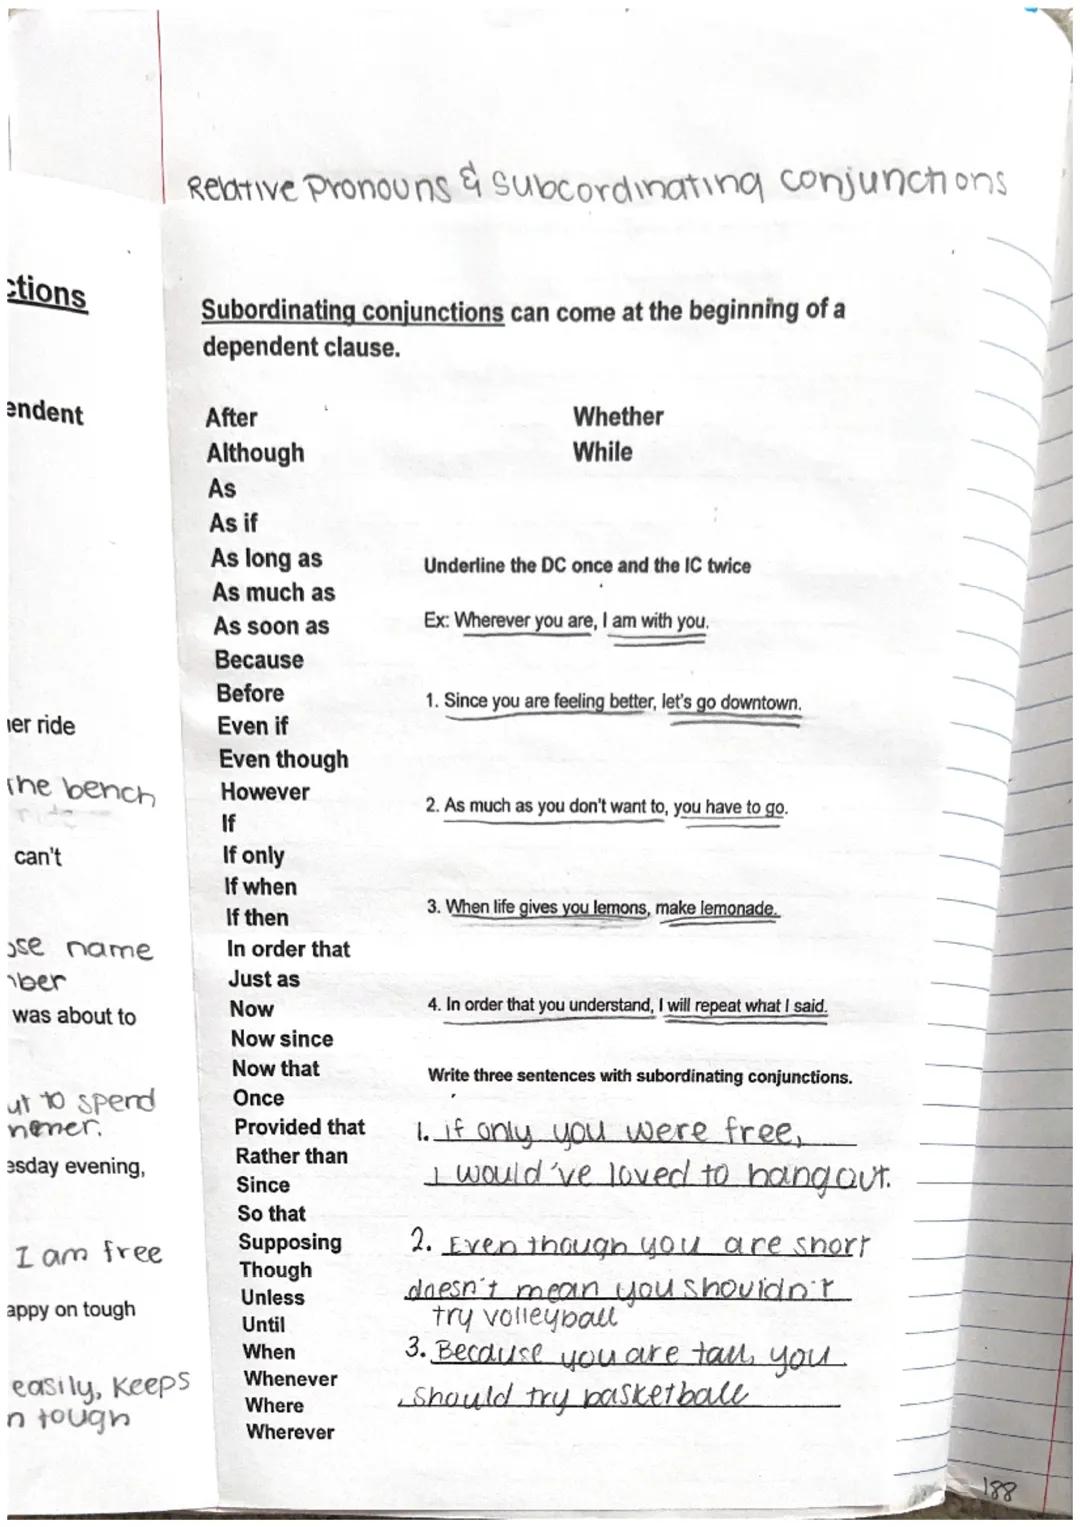 Relative Pronouns & Subcordinating conjunctions
ctions
Subordinating conjunctions can come at the beginning of a
dependent clause.
endent
After
Although
As
As if
As long as
As much as
As soon as
Because
Before
Even if
Even though
However
If
If only
If when
If then
In order that
Just as
Now
Now since
Now that
Once
Provided that
Rather than
Since
So that
Supposing
Though
Unless
Until
When
Whenever
Where
Wherever
Whether
While
Underline the DC once and the IC twice
Ex: Wherever you are, I am with you.
1. Since you are feeling better, let's go downtown.
2. As much as you don't want to, you have to go.
3. When life gives you lemons, make lemonade.
4. In order that you understand, I will repeat what I said.
Write three sentences with subordinating conjunctions.
1. if only you were free,
I would've loved to hangout.
2. Even though you are short
doesn't mean you shouldn't
try volleyball
3. Because you are tall, you
should try basketball
her ride
the bench
can't
ose name
ber
was about to
ut to spend
esday evening,
I am free
appy on tough
easily, keeps
n tough
188